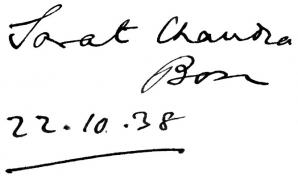 Sarat Chandra
Bose
22.10.38